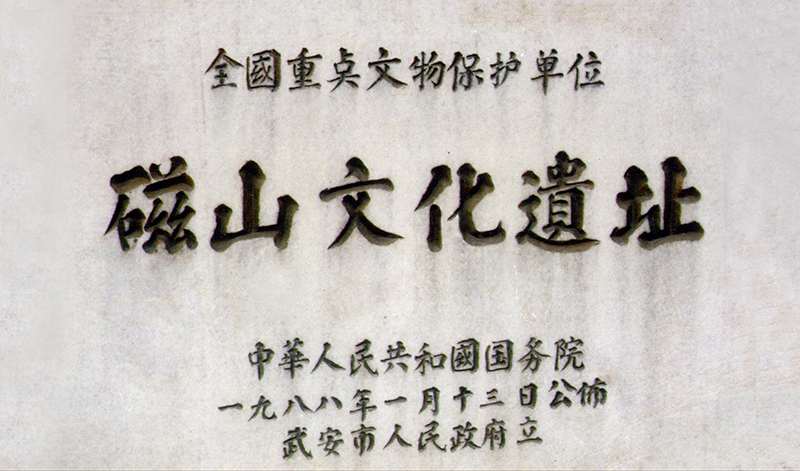 全國重点文物保护单位
磁山文化遺址
中華人民共和國国务院
一九八八年一月十三日公佈
武安市人民政府立